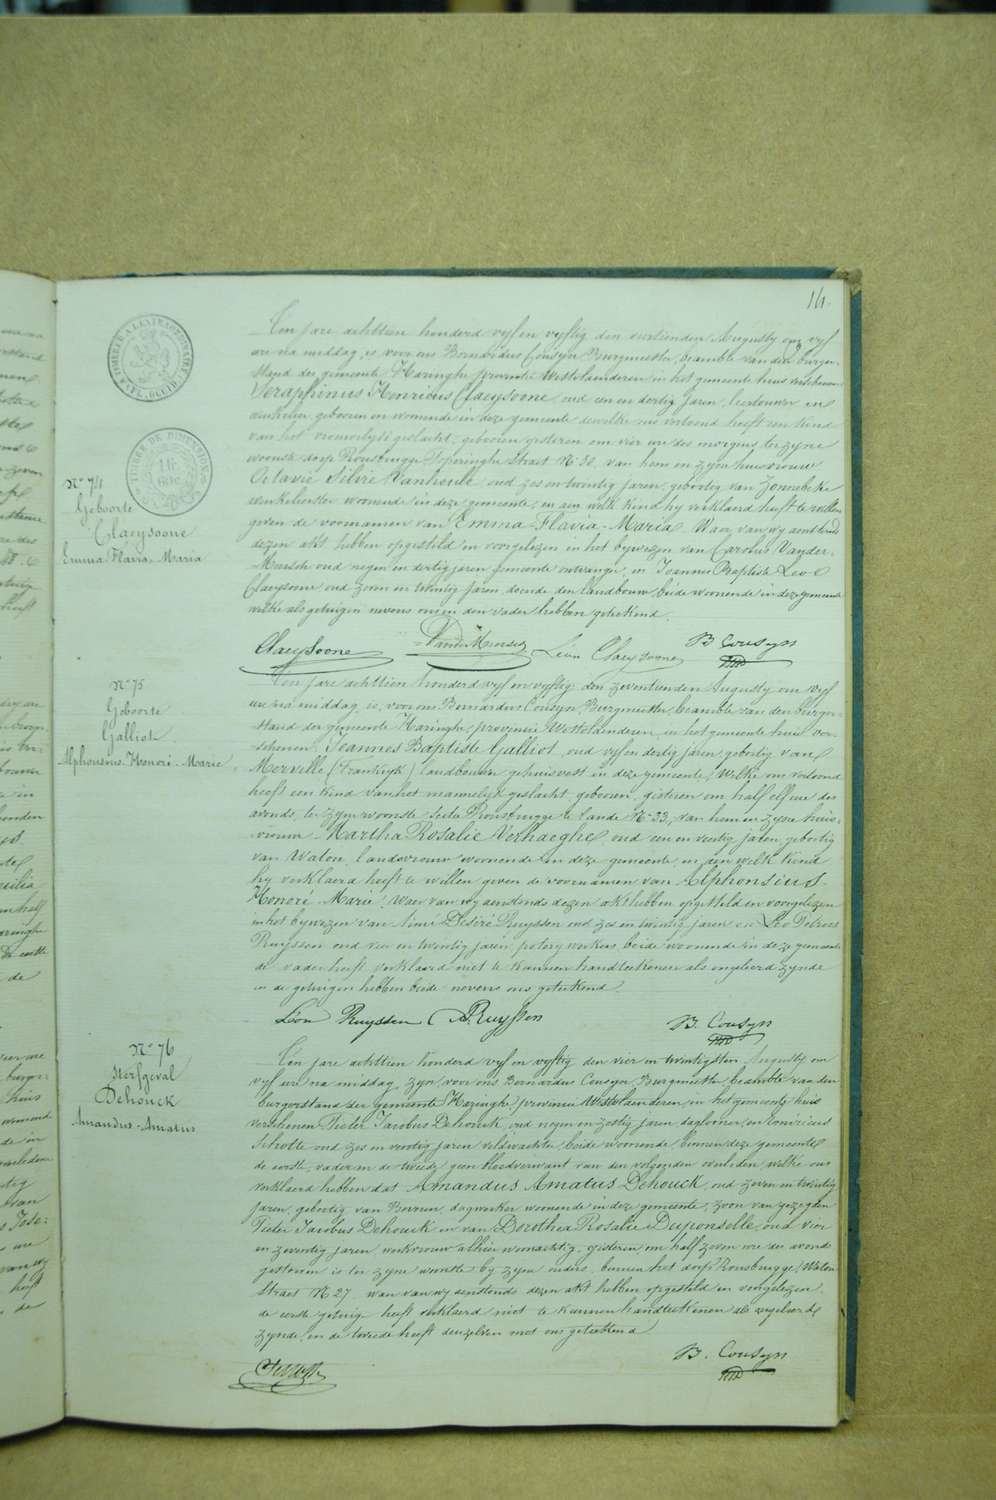 14.
TIMBRE A L'EXTRAORDINAIRE
FL. OCCID.
TIMBRE DE DIMENSION
N° 74
Geboorte
Claeysoone
Emma, Flavia, Maria
Ten jare achttien honderd vyf en vyftig den dertienden Augusty om vyf
ure na middag, is voor ons Bernardus Cousyn Burgmeester, beambte van den burger-
stand der gemeente Haringhe provincie Westvlaenderen in het gemeente huis verschenen
Seraphinus Henricus Claeysoone, oud een en dertig jaren,
geboren en wonende in deze gemeente dewelke ons vertoond heeft een kind
van het vrouwelyk geslacht, geboren gisteren om vier ure des morgens te zyne
woonst dorp Rousbrugge Iperinghe Straet N° 30, van hem en zyne huisvrouw
Octavie Vanheule oud zes en twintig jaren, geboortig van Zonnebeke
winkelierster wonende in deze gemeente, en aen welk kind hy verklaerd heeft te willen
geven de voornamen van Emma-Flavia-Maria. Waer van wy aenstonds
dezen akt hebben opgesteld en voorgelezen in het bywezen van Carolus Vander
Meersch oud negen en dertig jaren gemeente ontvanger, en Joannes Baptiste Leo
Claeysoone oud zeven en twintig jaren, doende den landbouw, beide wonende in deze gemeente
welke als getuigen nevens ons en den vader hebben geteekend.
Claeysoone VanderMeersch Léon Claeysoone B Cousyn
N° 75
Geboorte
Galliot
Alphonsius-Honoré-Marie
Ten jare achttien honderd vyf en vyftig den zeventienden Augusty om vyf
ure na middag is, voor ons Bernardus Cousyn, Burgmeester, beambte van den burger-
stand der gemeente Haringhe, provincie Westvlaenderen, in het gemeente huis ver-
schenen, Joannes Baptiste Galliot, oud vyf en dertig jaren geboortig van
Merville (Frankryk) landbouwer gehuisvest in deze gemeente, Welke ons vertoond
heeft een kind van het mannelyk geslacht geboren, gisteren om half elf ure des
avonds, te zyne woonste Rousbrugge te lande N° 33, van hem en zyne huis-
vrouw Martha Rosalie Verhaeghe, oud een en veertig jaren, geboortig
van Watou, landsvrouw wonende in deze gemeente, en aen welk kind
hy verklaerd heeft te willen geven de voornamen van Alphonsius-
Honoré-Marie, Waer van wy aenstonds dezen akt hebben opgesteld en voorgelezen
in het bywezen van Aimé Desiré Ruyssen oud zes en twintig jaren en Leo
Ruyssen oud vier en twintig jaren, beide wonende in deze gemeente
de vader heeft verklaerd niet te kunnen handteekenen als ongeleerd zynde
en de getuigen hebben beide nevens ons geteekend.
Léon Ruyssen A. Ruyssen B. Cousyn
N° 76
Sterfgeval
Dehouck
Amandus-Amatus
Ten jare achttien honderd vyf en vyftig den vier en twintigsten Augusty om
vyf ure na middag, zyn, voor ons Bernardus Cousyn Burgmeester, beambte van den
burgerstand der gemeente Haringhe, provincie Westvlaenderen, in het gemeente huis
verschenen Pieter Jacobus Dehouck, oud negen en zestig jaren dagloner en
Schotte oud zes en veertig jaren veldwachter, beide wonende binnen deze gemeente
de eerste vader en de tweede geen bloedverwant van den volgenden overleden, welke ons
verklaerd hebben dat Amandus Amatus Dehouck, oud zeven en twintig
jaren, geboortig van Beveren, dagwerker wonende in deze gemeente, zoon van gezegden
Pieter Jacobus Dehouck en van Dorothea Rosalie Deyponselle, oud vier
en zeventig jaren, werkvrouw alhier woonachtig, gisteren om half zeven ure des avonds
gestorven is ter zyne woonste by zyne ouders, binnen het dorp Rousbrugge, Watou
Straet N° 27, waer van wy aenstonds dezen akt hebben opgesteld en voorgelezen,
de eerste getuig heeft verklaerd niet te kunnen handteekenen als ongeleerd
zynde, en de tweede heeft denzelven met ons geteekend.
B. Cousyn